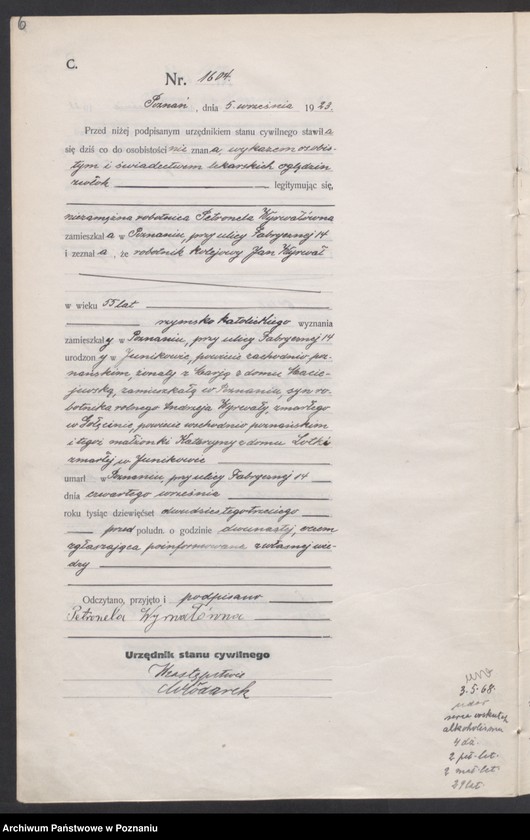 6
C.
Nr. 1604.
Poznań, dnia 5. września 1923.
Przed niżej podpisanym urzędnikiem stanu cywilnego stawiła
się dziś co do osobistości nie znana, wykazem osobis-
tym i świadectwem lekarskich oględzin
zwłok legitymując się,
niezamężna robotnica Petronela Wyrwałówna
zamieszkała w Poznaniu, przy ulicy Fabrycznej 14
i zeznała, że robotnik kolejowy Jan Wyrwał
w wieku 55 lat
rzymsko katolickiego wyznania
zamieszkały w Poznaniu, przy ulicy Fabrycznej 14
urodzony w Junikowie, powiecie zachodnio poz-
nańskim, żonaty z Marją z domu Macie-
jewską, zamieszkałą w Poznaniu, syn ro-
botnika rolnego Andrzeja Wyrwały, zmarłego
w Sołęcinie, powiecie wschodnio poznańskim
i tegoż małżonki Katarzyny z domu
zmarłej w Junikowie
umarł w Poznaniu, przy ulicy Fabrycznej 14
dnia czwartego września
roku tysiąc dziewięćset dwudziestego trzeciego
przed południ. o godzinie dwunastej, o czem
zgłaszająca poinformowana z własnej wie-
dzy
Odczytano, przyjęto i podpisano
Petronela Wyrwałówna
Urzędnik stanu cywilnego
W zastępstwie
Włodarek
3.5.68.
udar
serca wskutek
alkoholizmu
4 dz.
29 lat.